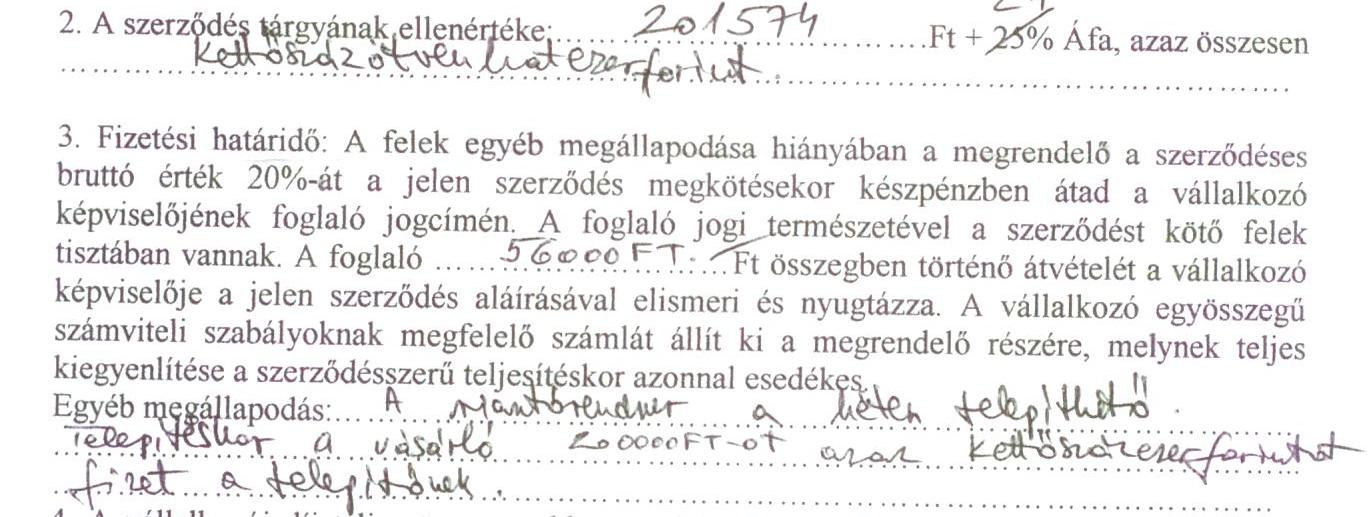 2. A szerződés tárgyának ellenértéke: 201574 Ft + 25% Áfa, azaz összesen
Kettőszázötvenhatezerforint.
3. Fizetési határidő: A felek egyéb megállapodása hiányában a megrendelő a szerződéses
bruttó érték 20%-át a jelen szerződés megkötésekor készpénzben átad a vállalkozó
képviselőjének foglaló jogcímén. A foglaló jogi természetével a szerződést kötő felek
tisztában vannak. A foglaló 56000 FT. Ft összegben történő átvételét a vállalkozó
képviselője a jelen szerződés aláírásával elismeri és nyugtázza. A vállalkozó egyösszegű
számviteli szabályoknak megfelelő számlát állít ki a megrendelő részére, melynek teljes
kiegyenlítése a szerződésszerű teljesítéskor azonnal esedékes.
Egyéb megállapodás: A a héten telepíthető.
Telepítéskor a vásárló 200000FT-ot azaz Kettőszázezerforintot
fizet a telepítőnek.